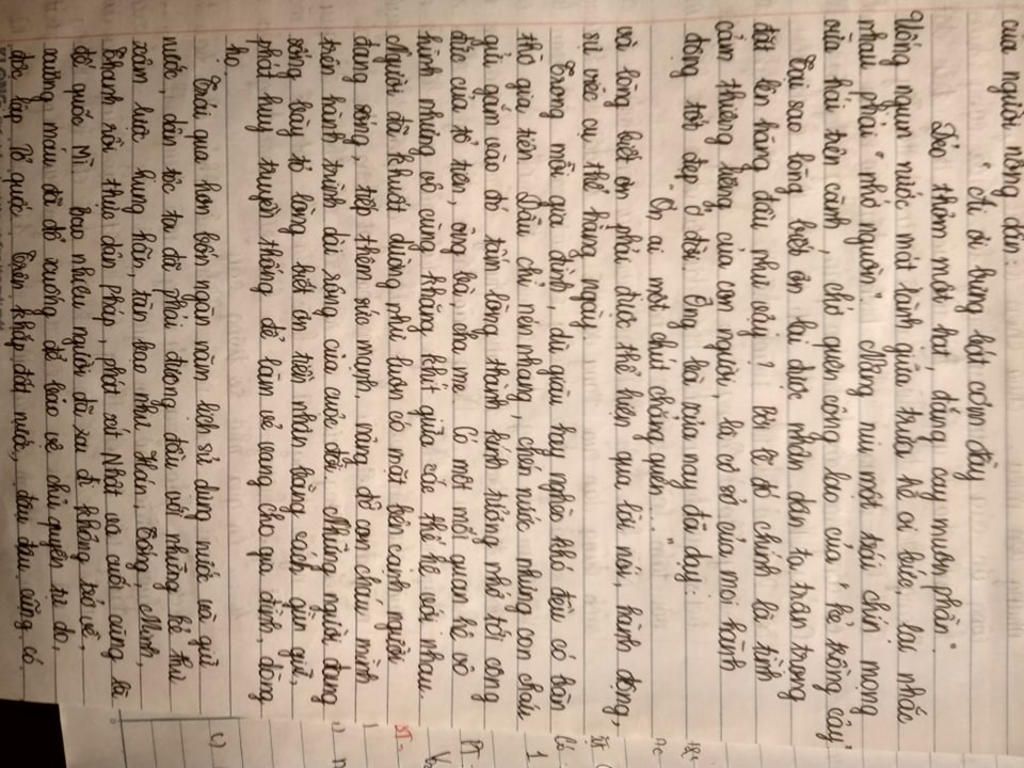 của người nông dân:
"Ai ơi bưng bát cơm đầy
Dẻo thơm một hạt, đắng cay muôn phần".
Uống ngụm nước mát lành giữa trưa hè oi bức, lại nhắc
nhau phải "nhớ nguồn". Nâng niu một trái chín mọng
vừa hái trên cành, chớ quên công lao của "kẻ trồng cây".
Tại sao lòng biết ơn lại được nhân dân ta trân trọng
đặt lên hàng đầu như vậy? Bởi lẽ đó chính là tình
cảm thiêng liêng của con người, là cơ sở của mọi hành
động tốt đẹp ở đời. Ông bà xưa nay đã dạy:
"Ơn ai một chút chẳng quên..."
và lòng biết ơn phải được thể hiện qua lời nói, hành động,
sự việc cụ thể hàng ngày.
Trong mỗi gia đình, dù giàu hay nghèo khó đều có bàn
thờ gia tiên. Dẫu chỉ nén nhang, chén nước nhưng con cháu
gửi gắm vào đó tấm lòng thành kính tưởng nhớ tới công
đức của tổ tiên, ông bà, cha mẹ. Có một mối quan hệ vô
hình nhưng vô cùng khăng khít giữa các thế hệ với nhau.
Người đã khuất dường như luôn có mặt bên cạnh người
đang sống, tiếp thêm sức mạnh, nâng đỡ con cháu mình
trên hành trình dài sống của cuộc đời. Những người đang
sống bày tỏ lòng biết ơn tiền nhân bằng cách gìn giữ,
phát huy truyền thống để làm vẻ vang cho gia đình, dòng
họ.
Trải qua hơn bốn ngàn năm lịch sử dựng nước và giữ
nước, dân tộc ta đã phải đương đầu với những kẻ thù
xâm lược hung hãn, tàn bạo như Hán, Tống, Minh,
Thanh rồi thực dân Pháp, phát xít Nhật và cuối cùng là
đế quốc Mĩ. Bao nhiêu người đã ra đi không trở về,
xương máu đã đổ xuống để bảo vệ chủ quyền tự do,
độc lập Tổ quốc. Trên khắp đất nước, đâu đâu cũng có